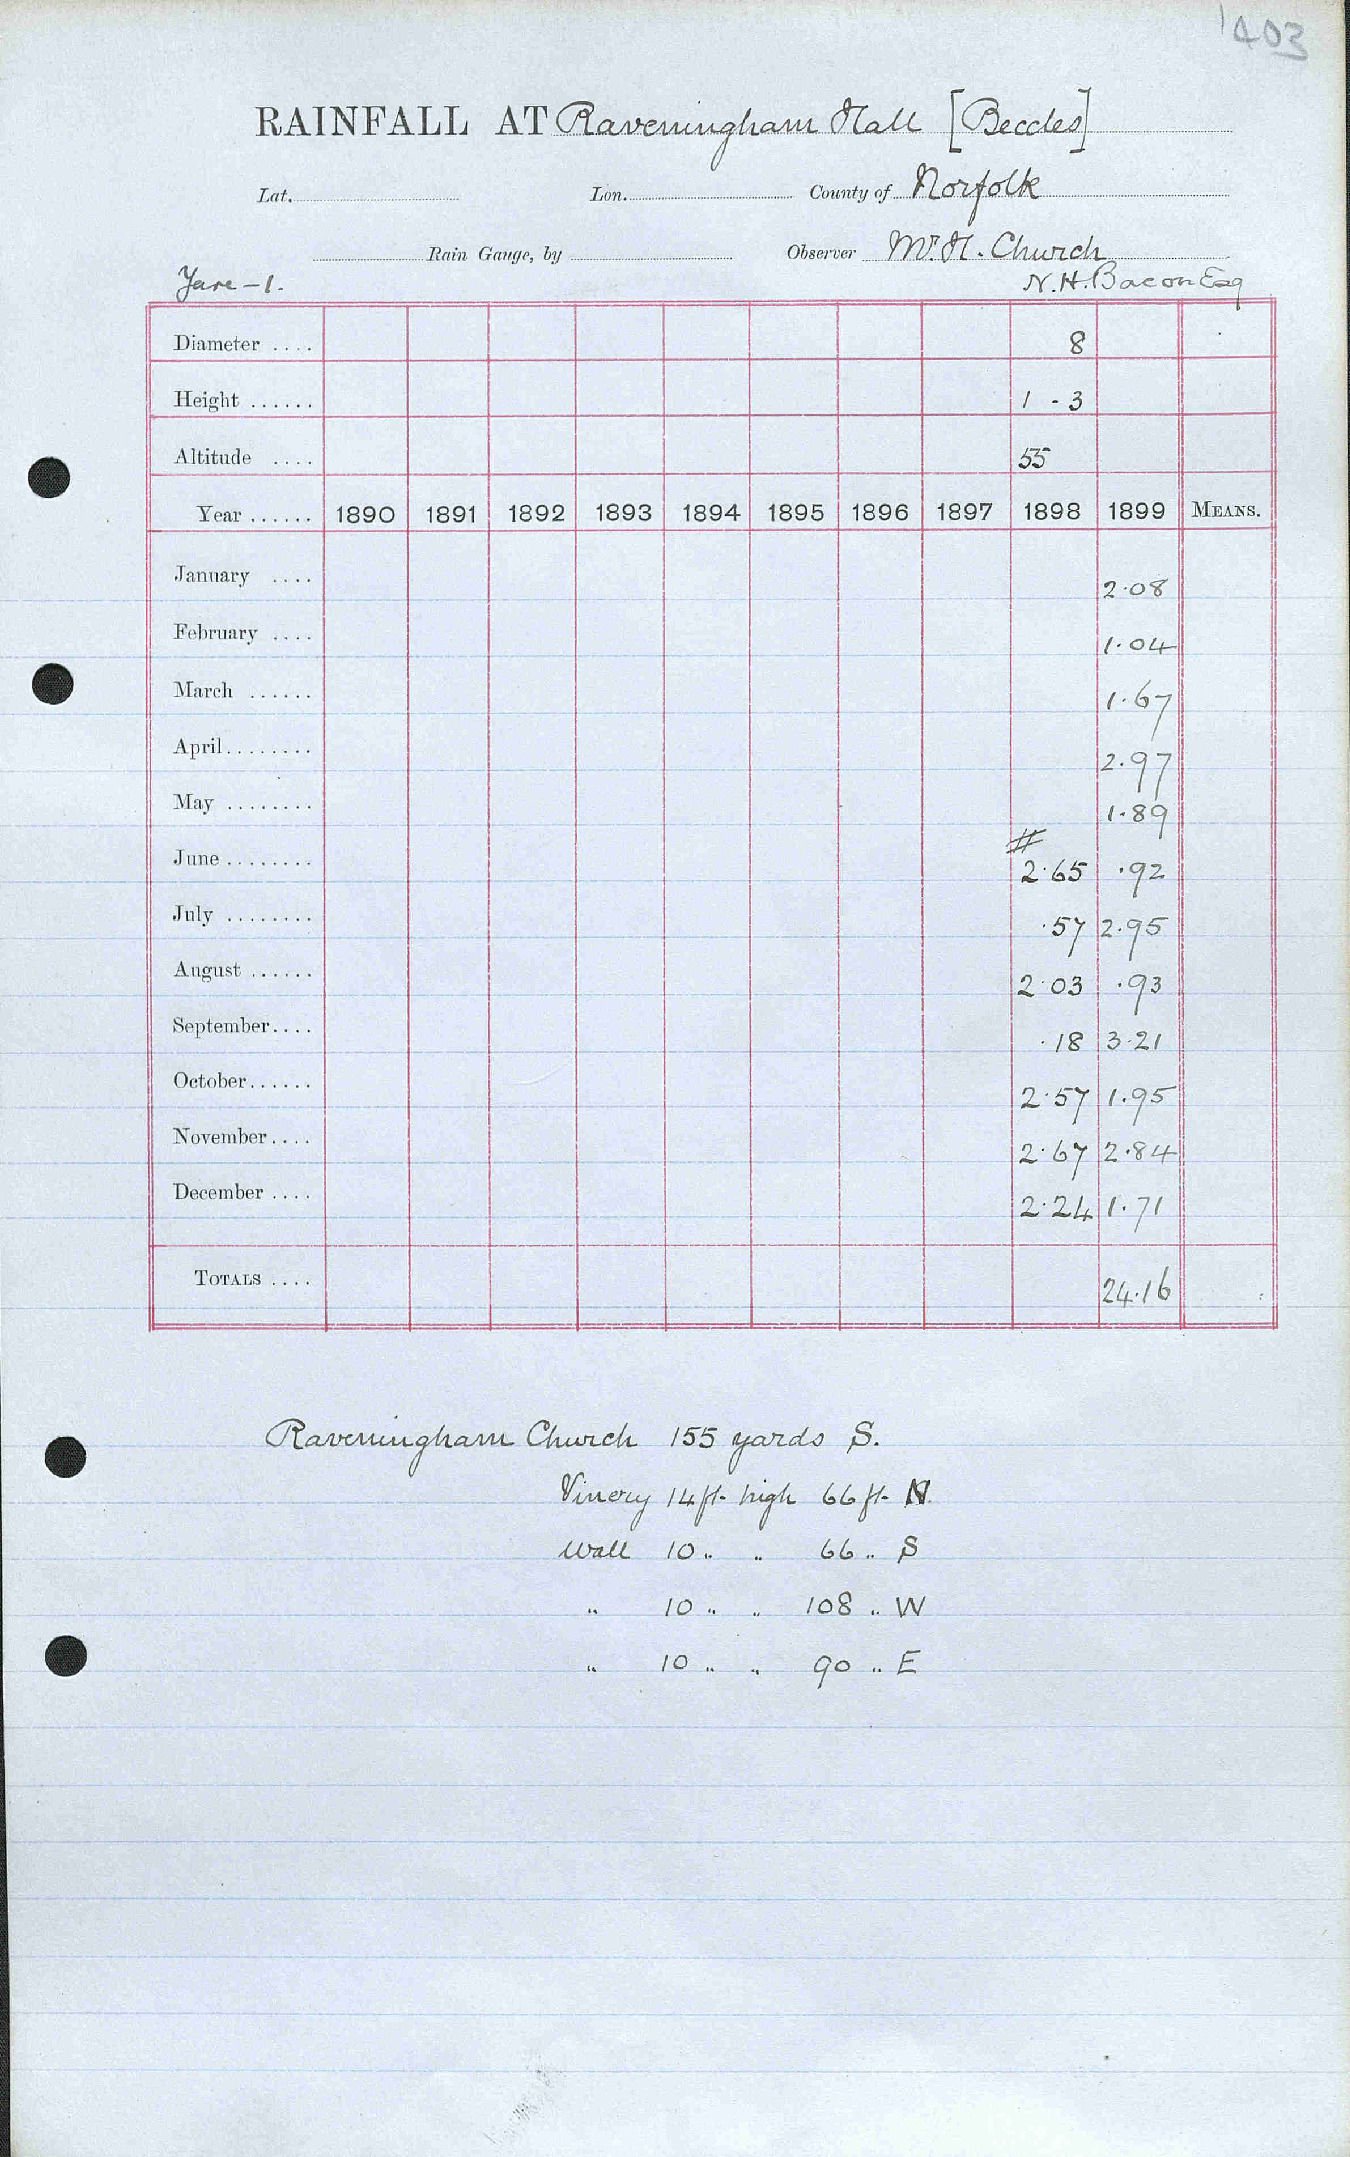 1403
RAINFALL AT Raveningham Hall [Beccles]
Lat. Lon. County of Norfolk
Rain Gauge, by Observer Mr. H. Church
Yare - 1. N. H. Bacon Esq
Diameter .... 8
Height ...... 1 - 3
Altitude .... 55
Year ...... 1890 1891 1892 1893 1894 1895 1896 1897 1898 1899 MEANS.
January .... 2.08
February .... 1.04
March ...... 1.67
April........ 2.97
May ........ 1.89
#
June ........ 2.65 .92
July ........ .57 2.95
August ...... 2.03 .93
September.... .18 3.21
October...... 2.57 1.95
November.... 2.67 2.84
December .... 2.24 1.71
TOTALS .... 24.16
Raveningham Church 155 yards S.
Vinery 14 ft. high 66 ft. N.
Wall 10 " " 66 " S
" 10 " " 108 " W
" 10 " " 90 " E